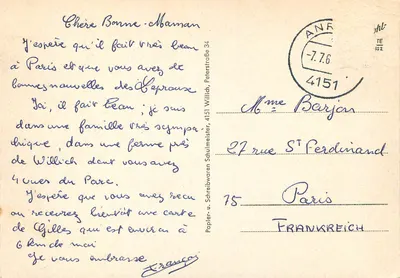 Chère Bonne-Maman
J'espère qu'il fait très beau
à Paris et que vous avez de
bonnes nouvelles des
Ici, il fait beau; je suis
dans une famille très sympa-
thique, dans une ferme près
de Willich dont vous avez
4 vues du Parc.
J'espère que vous avez reçu
ou recevrez bientôt une carte
de Gilles qui est environ à
6 km de moi
Je vous embrasse
François
Papier- u. Schreibwaren Schulmeister, 4151 Willich, Peterstraße 34
ANR
-7.7.6
4151
Mme Barjon
27 rue St Ferdinand
75 Paris
FRANKREICH